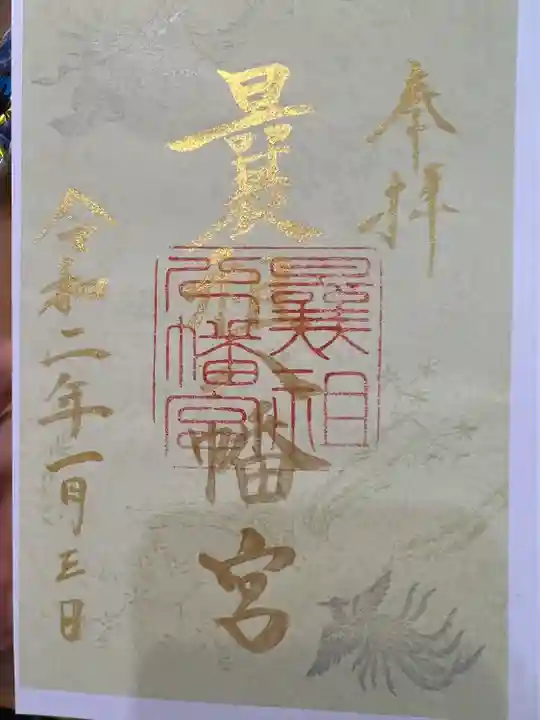 奉拝
曩祖八幡宮
令和二年一月三日
曩祖
八幡宮